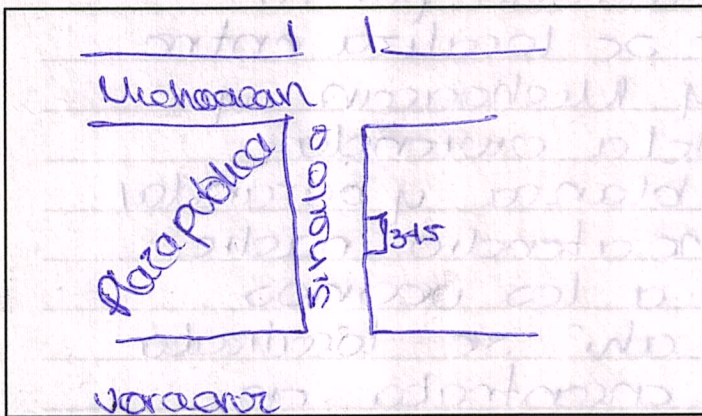 Michoacan
Plaza publica
Sinaloa
345
veracruz